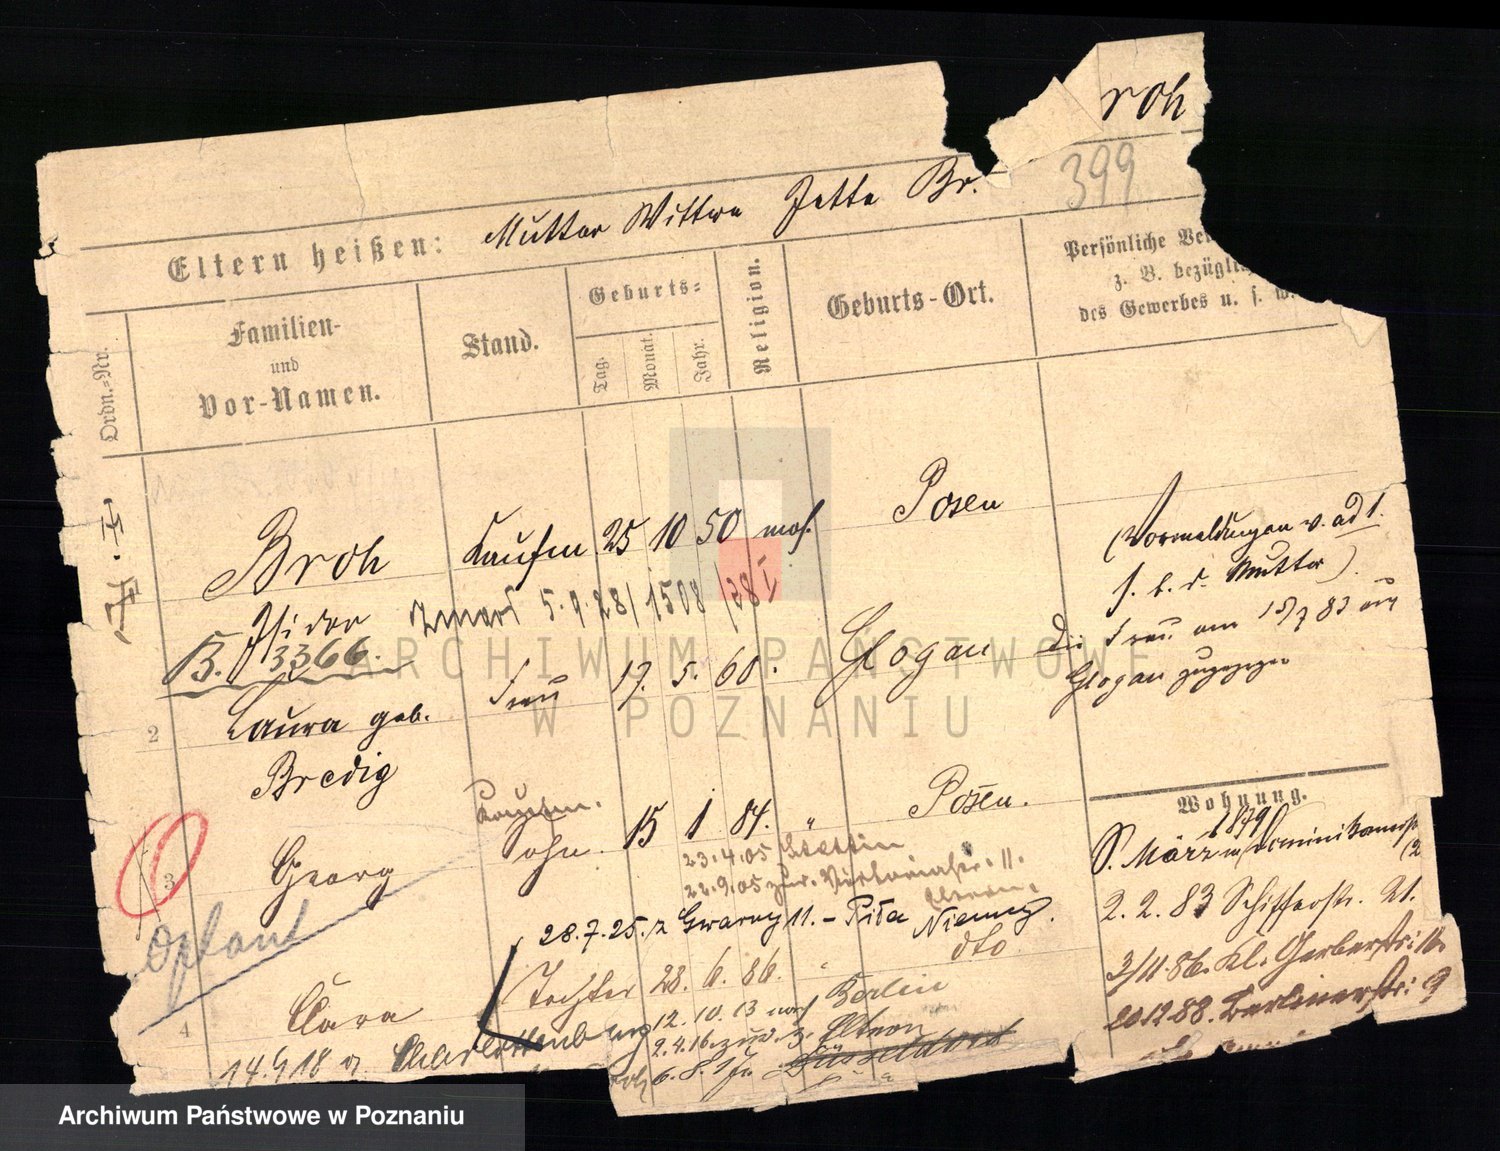 roh
399
Eltern heißen: Mutter Wittwe Jette Br.
Ordn.-Nr.
Familien-
und
Vor-Namen.
Stand.
Geburts-
Tag.
Monat.
Jahr.
Religion.
Geburts-Ort.
Persönliche
z. B. bezügli
des Gewerbes u. s. w.
Broh Kaufm 25 10 50 mos. Posen
Isidor
5.9.28/1508/38 I
B. 3366.
(Vormeldungen v. ad 1.
s. b. d. Mutter)
2 Laura geb. Frau 17. 5. 60. Glogan
Bredig
Die Frau am 15/7 83 aus
Glogau zugezogen
3 Georg Sohn 15 1 84. " Posen.
Kaufm.
23.4.05 Stettin
22.9.05 zur. Victoriastr. 11.
Eltern.
28.7.25. z Gwarny 11. - Piła Niemcy.
Optant
4 Clara Tochter 28. 6. 86. " dto
12.10.13 nach Berlin
14.9.18 n. Charlottenburg
2.4.16. zur. z. Eltern
6.8.17 Düsseldorf
Wohnung.
1879
S. März Dominikanerstr
2.2.83 Schifferstr. 21.
3/11.86. Kl. Gerberstr:
20.12.88. Berlinerstr: 9
ARCHIWUM PAŃSTWOWE
W POZNANIU
Archiwum Państwowe w Poznaniu